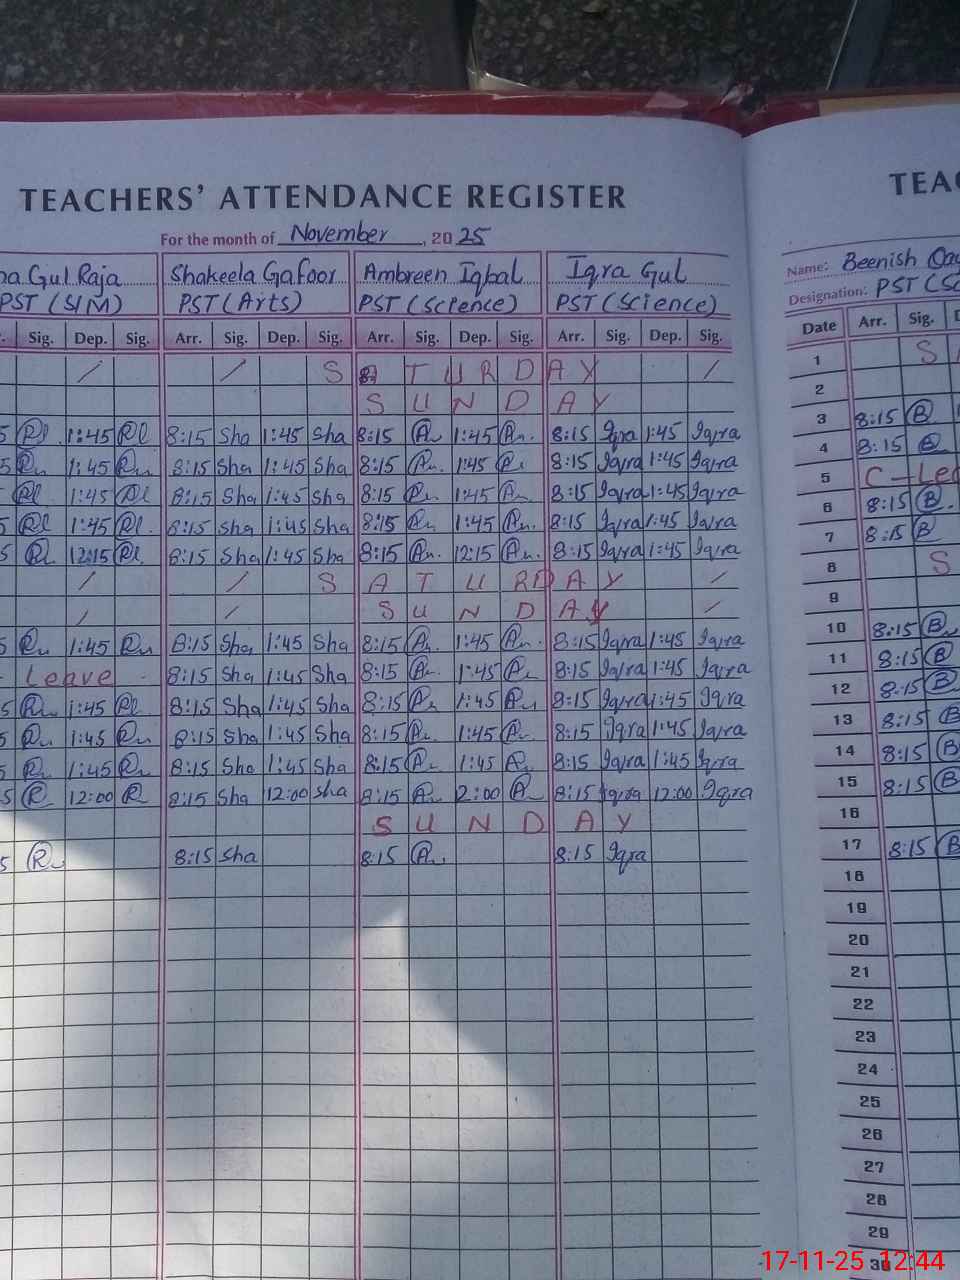 TEACHERS' ATTENDANCE REGISTER
For the month of November, 2025
Gul Raja Shakeela Gafoor Ambreen Iqbal Iqra Gul
PST (SIM) PST (Arts) PST (Science) PST (Science)
Sig. Dep. Sig. Arr. Sig. Dep. Sig. Arr. Sig. Dep. Sig. Arr. Sig. Dep. Sig.
/ / S A T U R D A Y /
S U N D A Y
1:45 8:15 Sha 1:45 Sha 8:15 1:45 8:15 Iqra 1:45 Iqra
1:45 8:15 Sha 1:45 Sha 8:15 1:45 8:15 Iqra 1:45 Iqra
1:45 8:15 Sha 1:45 Sha 8:15 1:45 8:15 Iqra 1:45 Iqra
1:45 8:15 Sha 1:45 Sha 8:15 1:45 8:15 Iqra 1:45 Iqra
12:15 8:15 Sha 1:45 Sha 8:15 12:15 8:15 Iqra 1:45 Iqra
/ / S A T U R D A Y /
/ / S U N D A Y /
1:45 8:15 Sha 1:45 Sha 8:15 1:45 8:15 Iqra 1:45 Iqra
Leave 8:15 Sha 1:45 Sha 8:15 1:45 8:15 Iqra 1:45 Iqra
1:45 8:15 Sha 1:45 Sha 8:15 1:45 8:15 Iqra 1:45 Iqra
1:45 8:15 Sha 1:45 Sha 8:15 1:45 8:15 Iqra 1:45 Iqra
1:45 8:15 Sha 1:45 Sha 8:15 1:45 8:15 Iqra 1:45 Iqra
12:00 8:15 Sha 12:00 Sha 8:15 2:00 8:15 Iqra 12:00 Iqra
S U N D A Y
8:15 Sha 8:15 8:15 Iqra
TEAC
Name: Beenish
Designation: PST
Date Arr. Sig. D
1 S
2
3 8:15 B
4 8:15 B
5 C-Lea
6 8:15 B
7 8:15 B
8 S
9
10 8:15 B
11 8:15 B
12 8:15 B
13 8:15 B
14 8:15 B
15 8:15 B
16
17 8:15 B
18
19
20
21
22
23
24
25
26
27
28
29
30
17-11-25 12:44